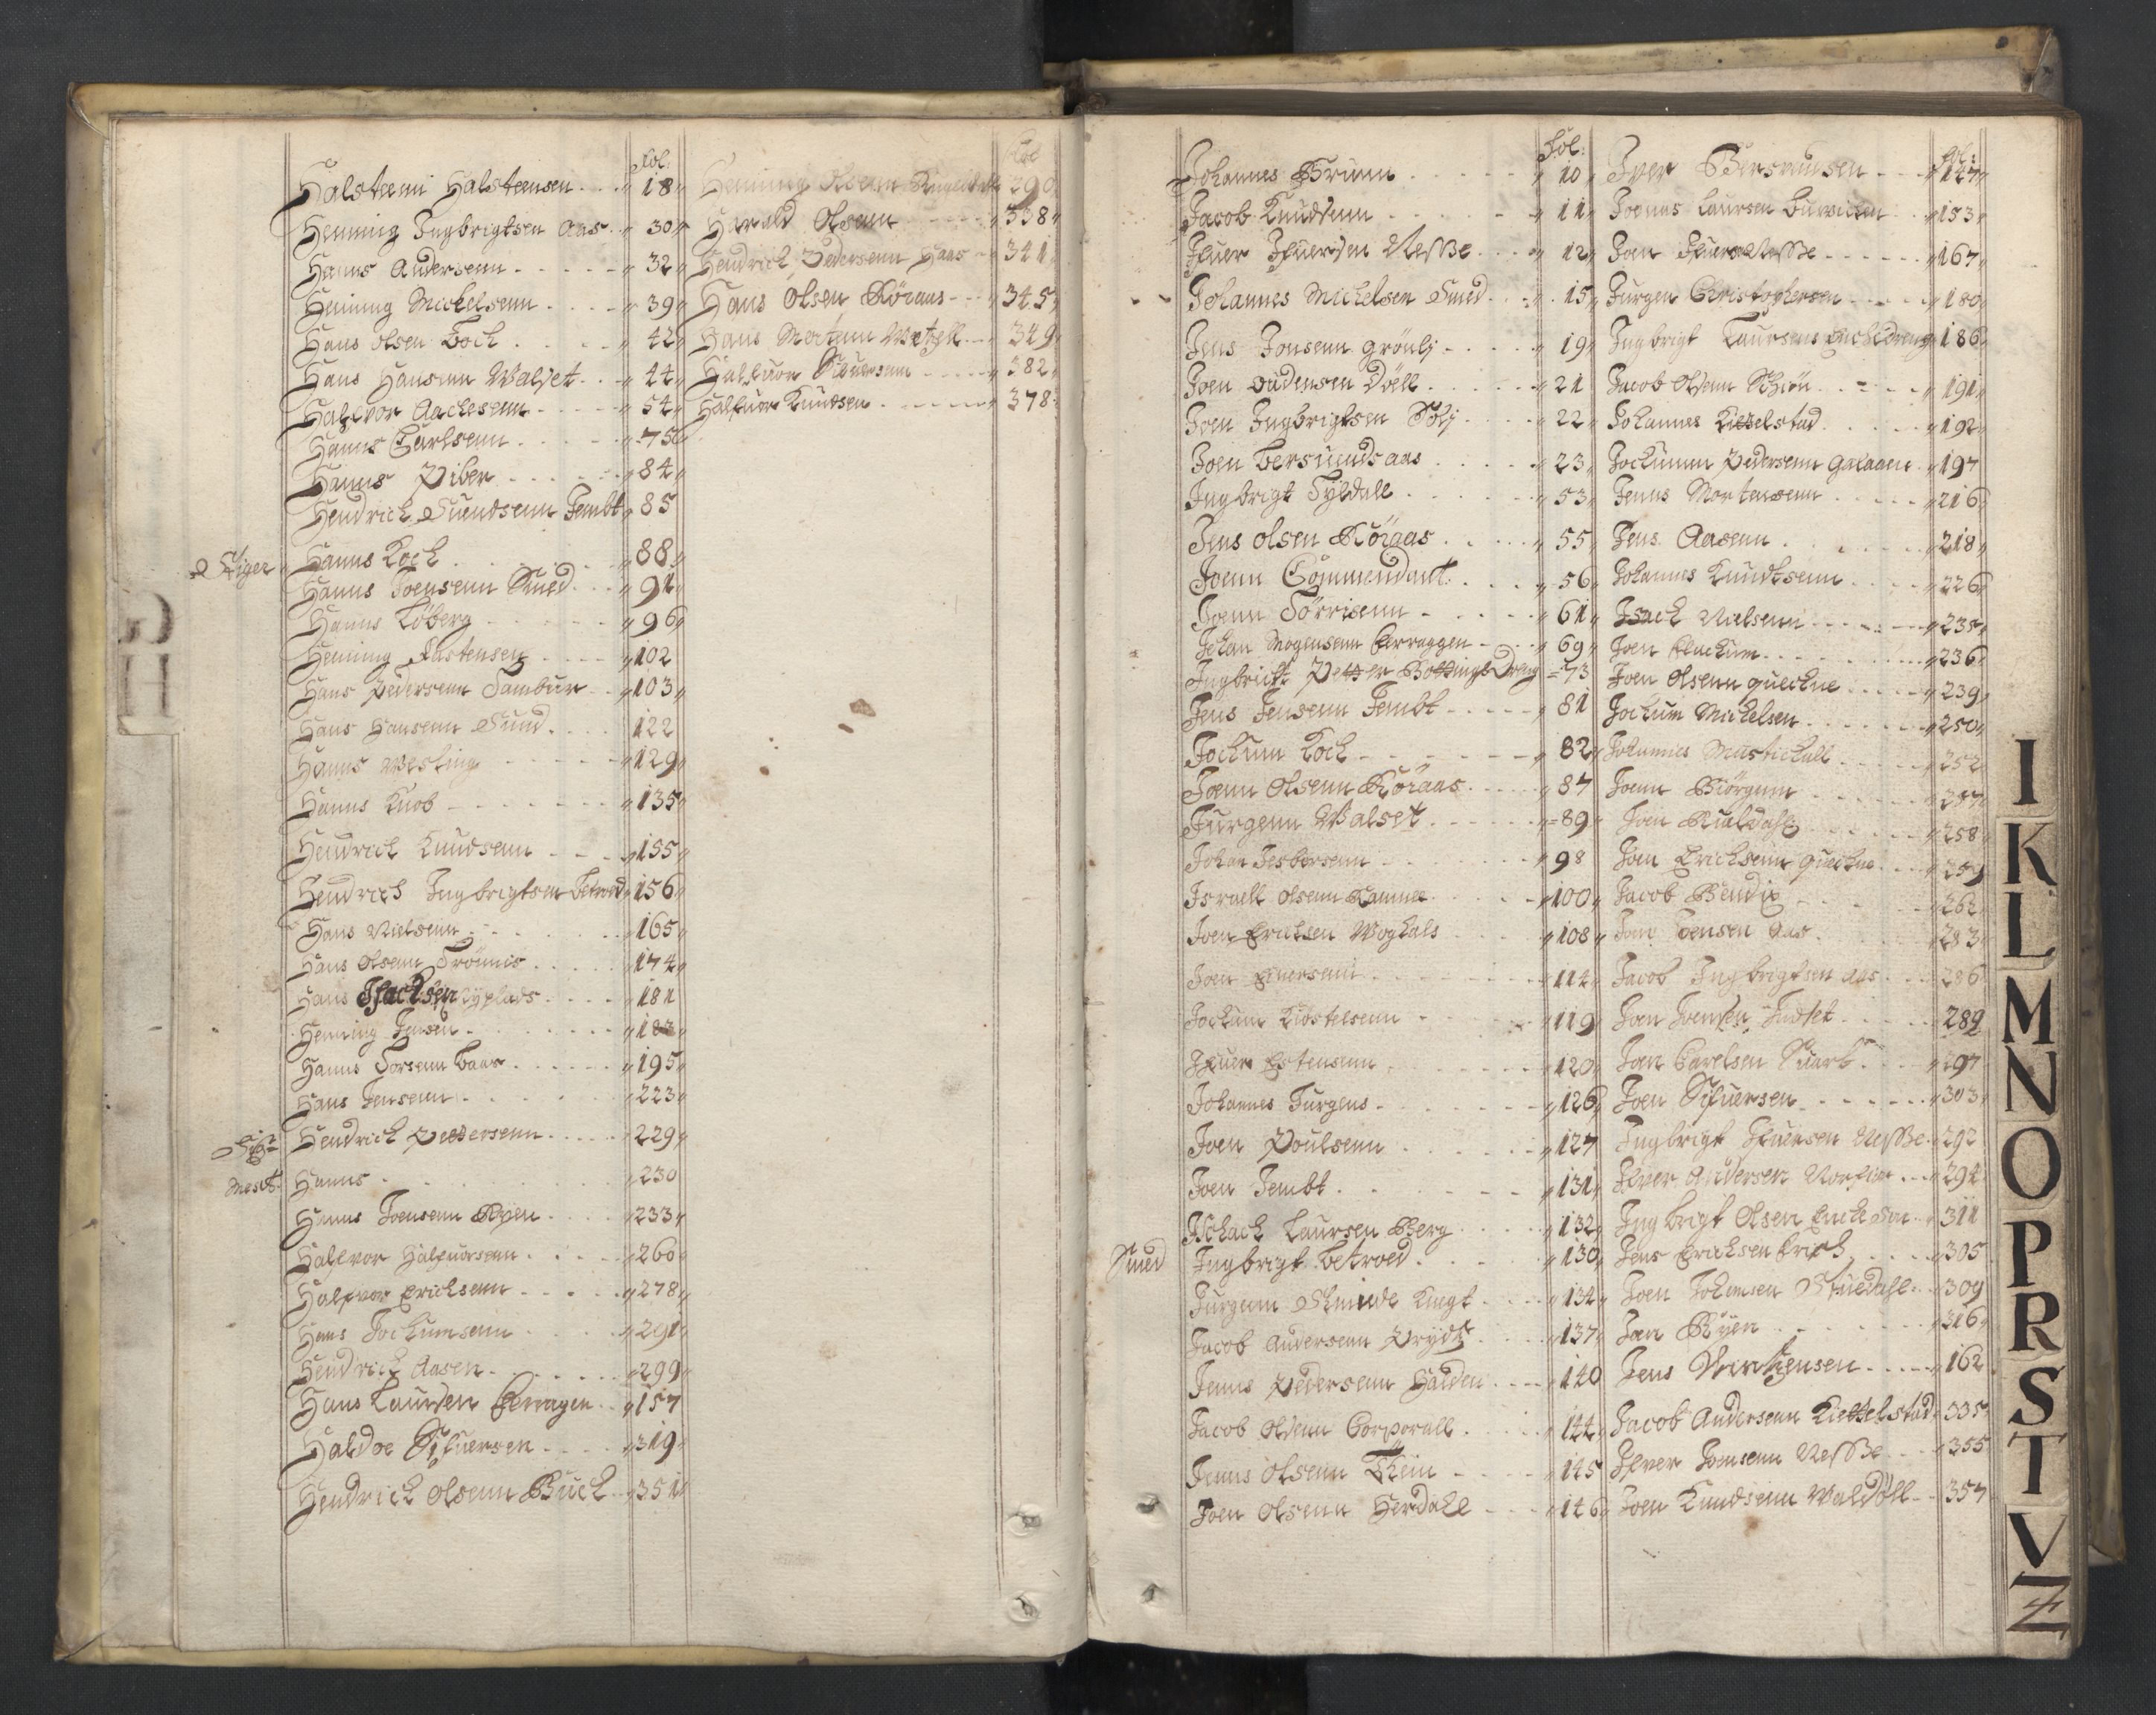 Fol:
Halsteenn Halsteensen 18
Henning Ingbrigtsen Aas 30
Hanns Andersenn 32
Hening Michelsenn 39
Hans Olsen Tock 42
Hans Hansenn Walset 44
Halfvor Aachesenn 54
Hanns Carlsenn 75
Hanns Piber 84
Hendrich Suendsenn Jembt 85
Hanns Kock 88
Hanns Joensenn Smed 91
Hanns Löberg 96
Hening Fastensen 102
Hans Pedersenn Tambur 103
Hans Hansenn Sund 122
Hanns Westing 129
Hanns Knob 135
Hendrich Knudsenn 155
Hendrich Ingbrigtsen Betroed 156
Hans Nielsenn 165
Hans Olsenn Trönnis 174
Hans Isacksen 181
Hening Jensen 183
Hanns Torsenn Baas 195
Hans Jensenn 223
Hendrich Pettersenn 229
Hanns 230
Hanns Joensenn Ryen 233
Halfvor Halfuorsenn 260
Halfvor Erichsenn 278
Hans Jochumsenn 291
Hendrich Aasen 299
Hans Laursen Elvragen 157
Haldoe Sifuersen 319
Hendrich Olsenn Buck 351
Fol
Henning Olsenn 290
Harald Olsenn 338
Hendrich Pedersenn Haas 341
Hans Olsen Röraas 345
Hans Mortenn Wetzell 349
Halfuor Sifuersenn 382
Halfuor Knudsen 378
G
H
Fol:
Johannes Brunn 10
Jacob Knudsenn 11
Ifuer Ifuersen Nesse 12
Johannes Michelsen Smed 15
Jens Jonsenn Grönlj 19
Joen Oudensen Döell 21
Joen Ingbrigtsen 22
Joen Bersuends aas 23
Ingbrigt Tyldall 53
Jens Olsen Röraas 55
Joenn Commendant 56
Joenn Törrisenn 61
Johan Mogensenn Elvraggen 69
Ingbricht Petter Bottings Dreng 73
Jens Jensenn Jembt 81
Jochum Kock 82
Joenn Olsenn Röraas 87
Jurgenn Walset 89
Johan Jesbersenn 98
Israell Olsenn Ramnee 100
Joen Erichsen Woghals 108
Joen Einersenn 114
Jochum Kiöstelsenn 119
Ifuer Estensenn 120
Johannes Jurgens 126
Joen Poulsenn 127
Joen Jembt 131
Ischach Laursen Berg 132
Smed Ingbrigt Betroed 130
Jurgenn Skmide Knegt 134
Jacob Andersenn Prydtz 137
Jenns Pedersenn Halden 140
Jacob Olsenn Corporall 144
Jenns Olsenn Klein 145
Joen Olsenn Herdahl 146
Fol:
Iver Bersvendsen 147
Joenns Laursen 153
Joen Ifuers Nesse 167
Jurgen Christophersen 180
Ingbrigt Laursens 186
Jacob Olsenn Schiön 191
Johannes Kiesselstad 192
Jochumm Pedersenn Galaaen 197
Jenns Mortensenn 216
Jens Aasenn 218
Johannes Knudtsenn 226
Isach Nielsenn 235
Joen Cluckum 236
Joen Olsenn Quechne 239
Jochum Michelsen 250
Johannes Mastichall 252
Joenn Biörgenn 257
Joen Rueldahl 258
Joen Erichsenn Quechne 259
Jacob Bendix 262
Joen Joensen Aas 283
Jacob Ingbrigtsen Aas 286
Joen Joensen Indset 289
Jon Carelsen Suartz 297
Joen Sifuersen 303
Ingbrigt Ifuersen Nesse 292
Ifver Andersen 294
Ingbrigt Olsen 311
Jens Erichsen Erich 305
Joen Johensen Stuedahl 309
Jon Ryen 316
Jens Virchensen 162
Jacob Andersenn Kiesselstad 335
Ifver Joensenn Nesse 355
Joen Knudsenn Waldöll 357
I
K
L
M
N
O
P
R
S
T
V
Z